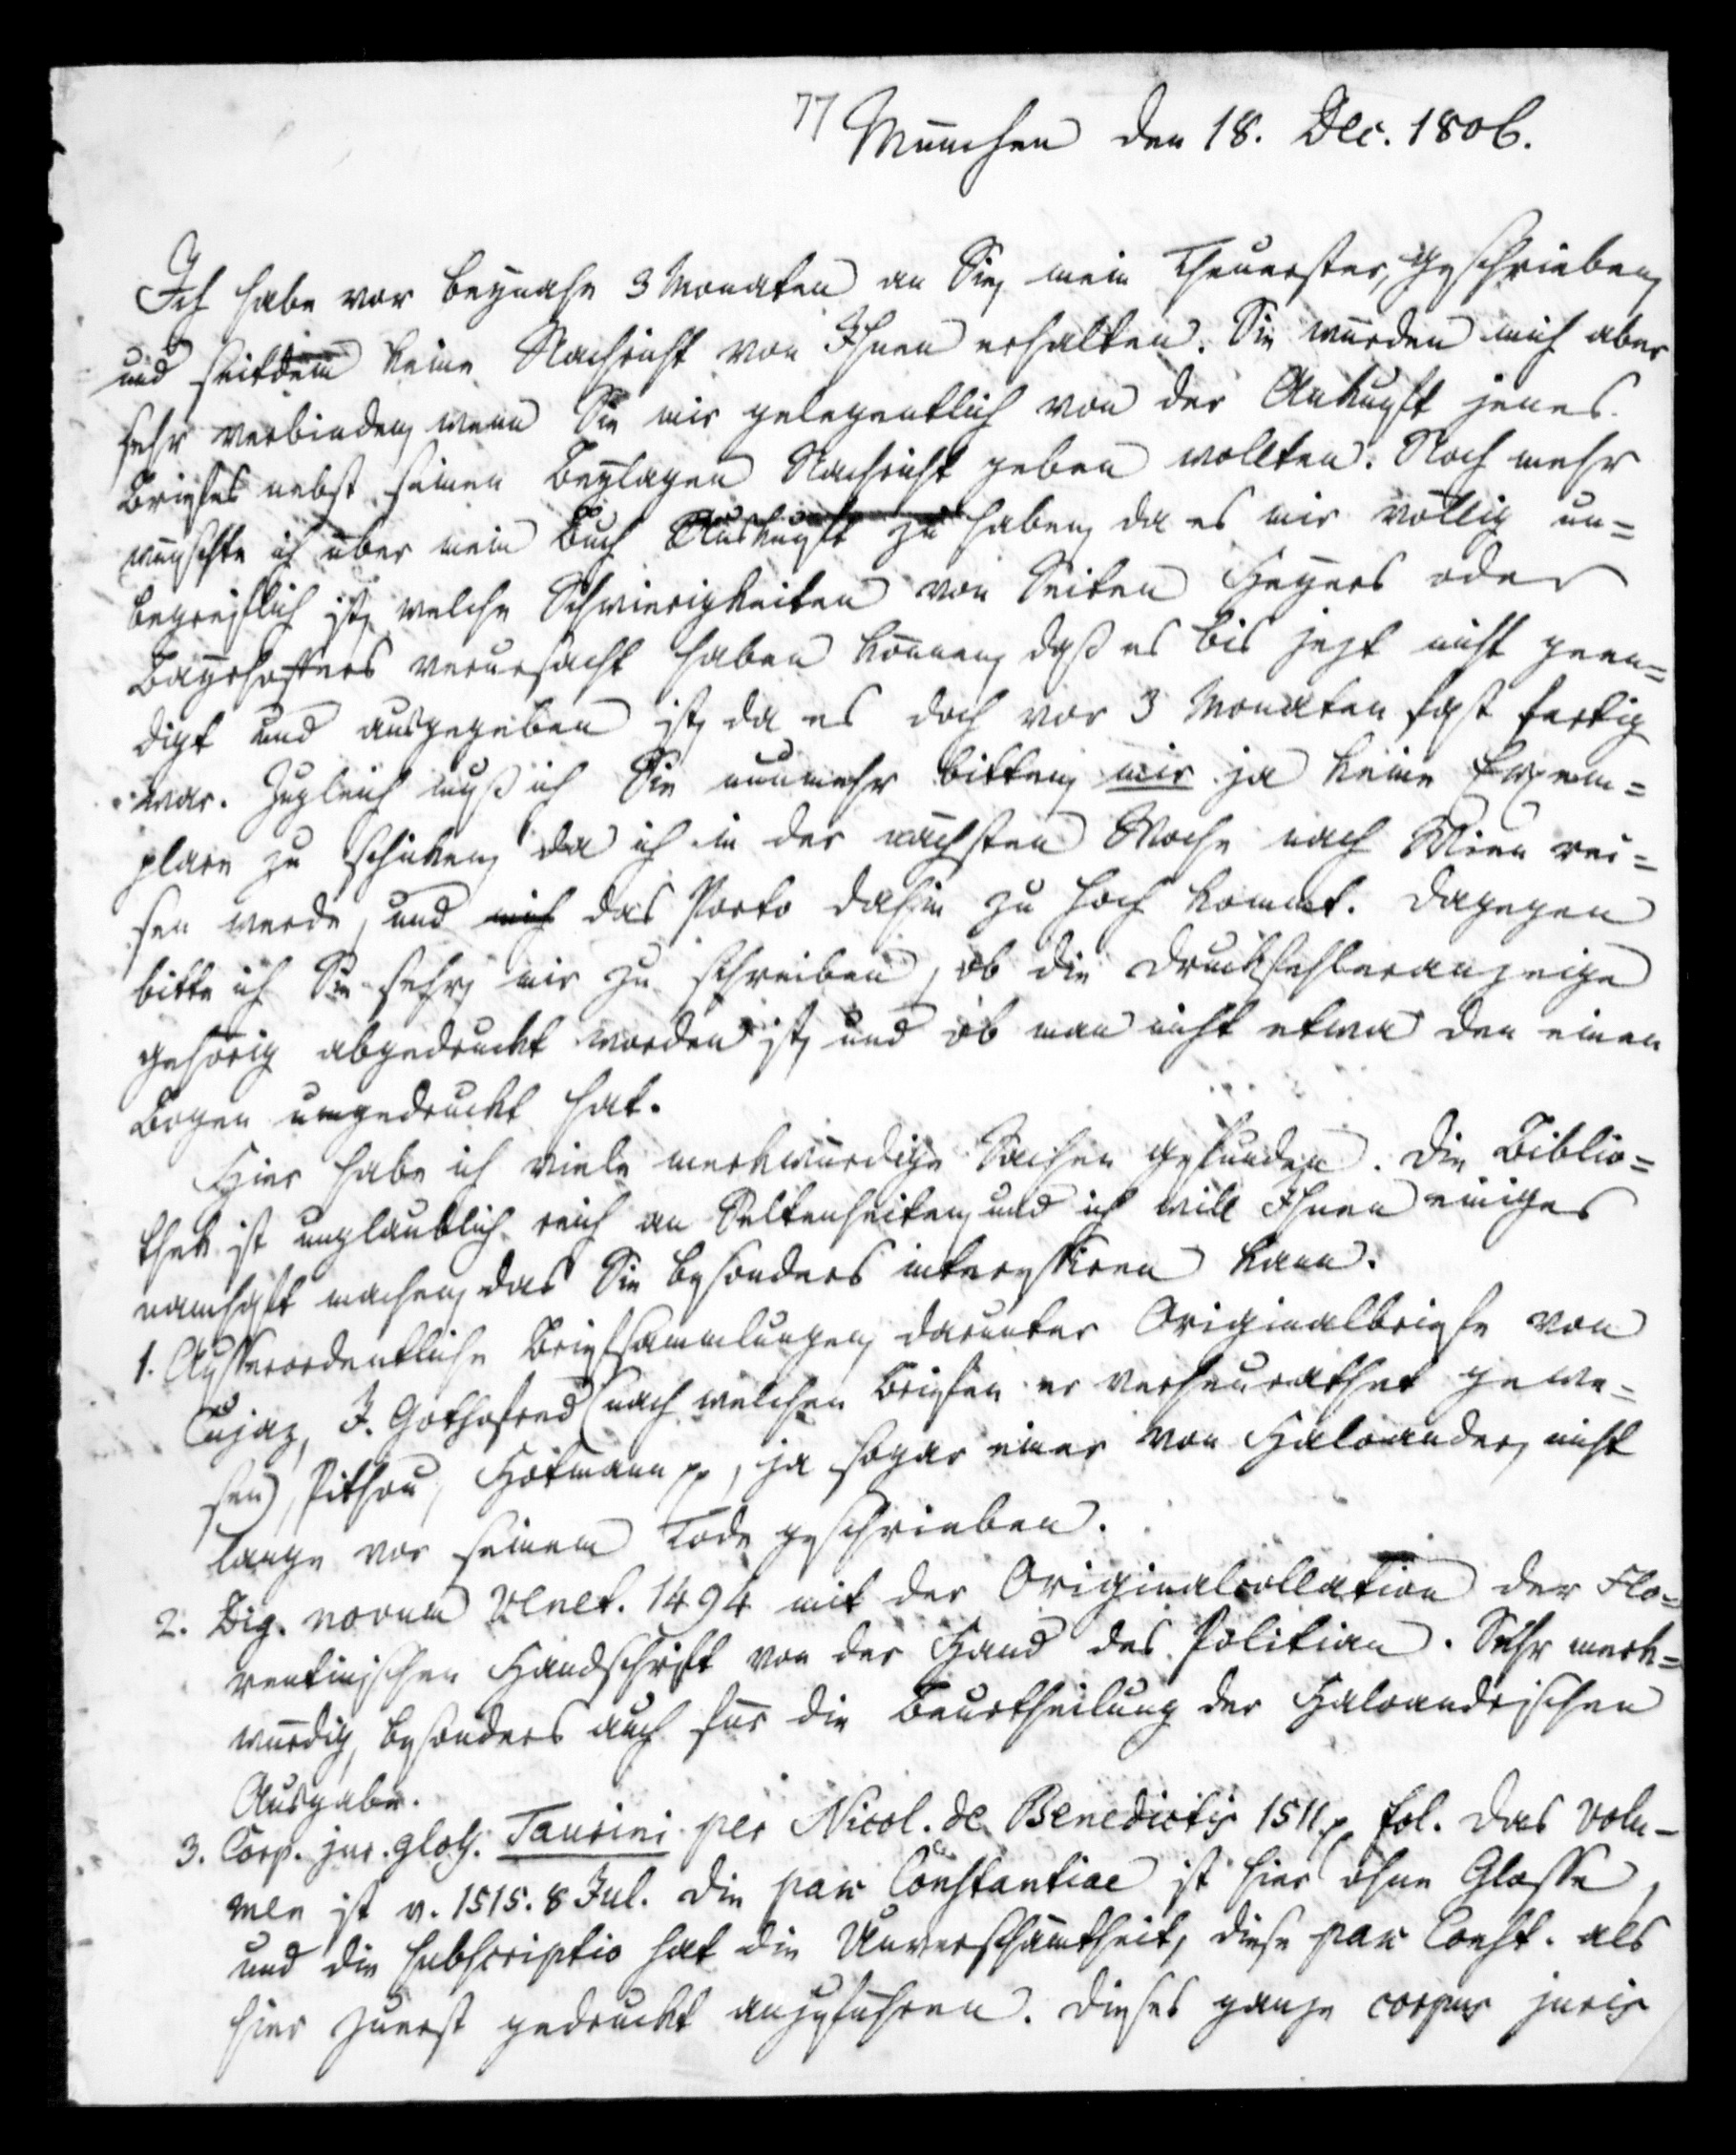 77 München den 18. Dec. 1806.
Ich habe vor beynahe 3 Monaten an Sie, mein Theuerster, geschrieben,
und seitdem keine Nachricht von Ihnen erhalten. Sie würden mich aber
sehr verbinden, wenn Sie mir gelegentlich von der Ankunft jenes
Briefes nebst seinen Beylagen Nachricht geben wollten. Noch mehr
wünschte ich über mein Buch Auskunft zu haben, da es mir völlig un=
begreiflich ist, welche Schwierigkeiten von Seiten Heyers oder
Bayrhoffers verursacht haben können, daß es bis jezt nicht geen=
digt und ausgegeben ist, da es doch vor 3 Monaten fast fertig
war. Zugleich muß ich Sie nunmehr bitten, mir ja keine Exem=
plare zu schicken, da ich in der nächsten Woche nach Wien rei=
sen werde, und mich das Porto dahin zu hoch kommt. Dagegen
bitte ich Sie sehr, mir zu schreiben, ob die Druckfehleranzeige
gehörig abgedruckt worden ist, und ob man nicht etwa den einen
Bogen umgedruckt hat.
Hier habe ich viele merkwürdige Sachen gefunden. Die Biblio=
thek ist unglaublich reich an Seltenheiten, und ich will Ihnen einiges
namhaft machen, das Sie besonders interessiren kann.
1. Ausserordentliche Briefsammlungen, darunter Originalbriefe von
Cujaz, J. Gothofred (nach welchen Briefen er verheurathet gewe=
sen), Pithou, Hotmann pp, ja sogar einer von Haloander, nicht
lange vor seinem Tode geschrieben.
2. Dig. novum Venet. 1494 mit der Originalcollation der Flo=
rentinischen Handschrift von der Hand des Politian. Sehr merk=
würdig, besonders auch für die Beurtheilung der Haloandrischen
Ausgabe.
3. Corp. jur. gloss. Taurini per Nicol. de Benedictis 1511 p fol. Das Volu-
men ist v. 1515. 8 Jul. Die pax Constantiae ist hier ohne Glosse,
und die subscriptio hat die Unverschämtheit, diese pax Const. als
hier zuerst gedruckt anzuführen. Dieses ganze corpus juris